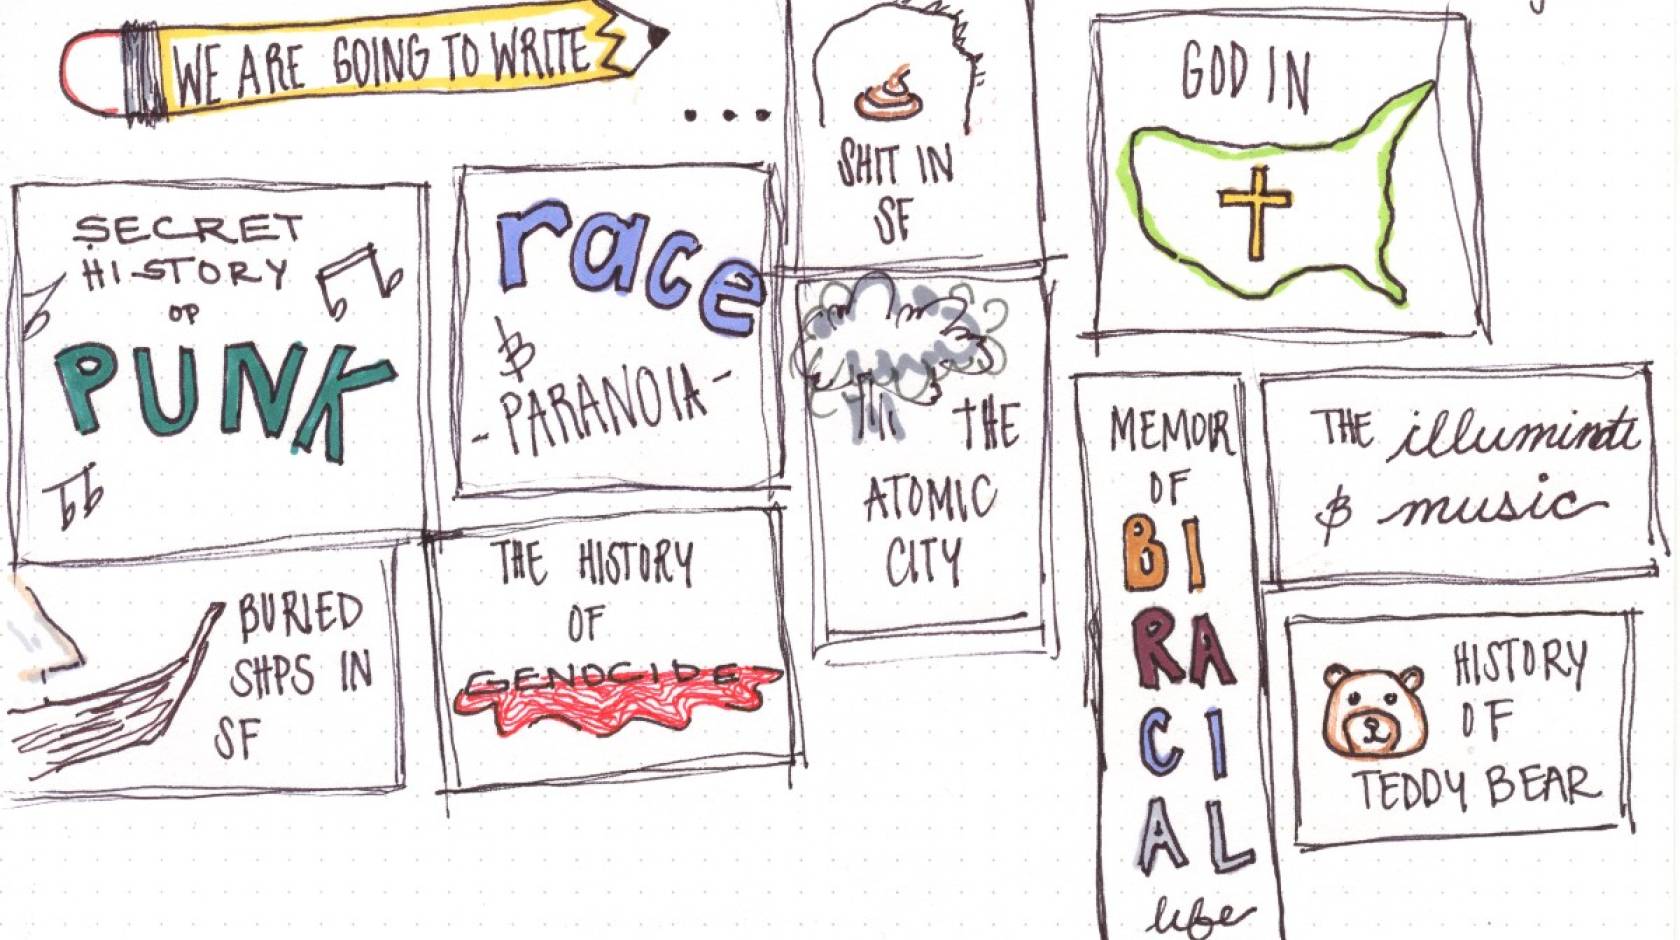 WE ARE GOING TO WRITE
...
SHIT IN
SF
GOD IN
SECRET
HISTORY
OP
PUNK
race
&
-PARANOIA-
THE
ATOMIC
CITY
MEMOIR
OF
BI
RA
CI
AL
life
THE illuminati
& music
BURIED
SHPS IN
SF
THE HISTORY
OF
GENOCIDE
HISTORY
OF
TEDDY BEAR